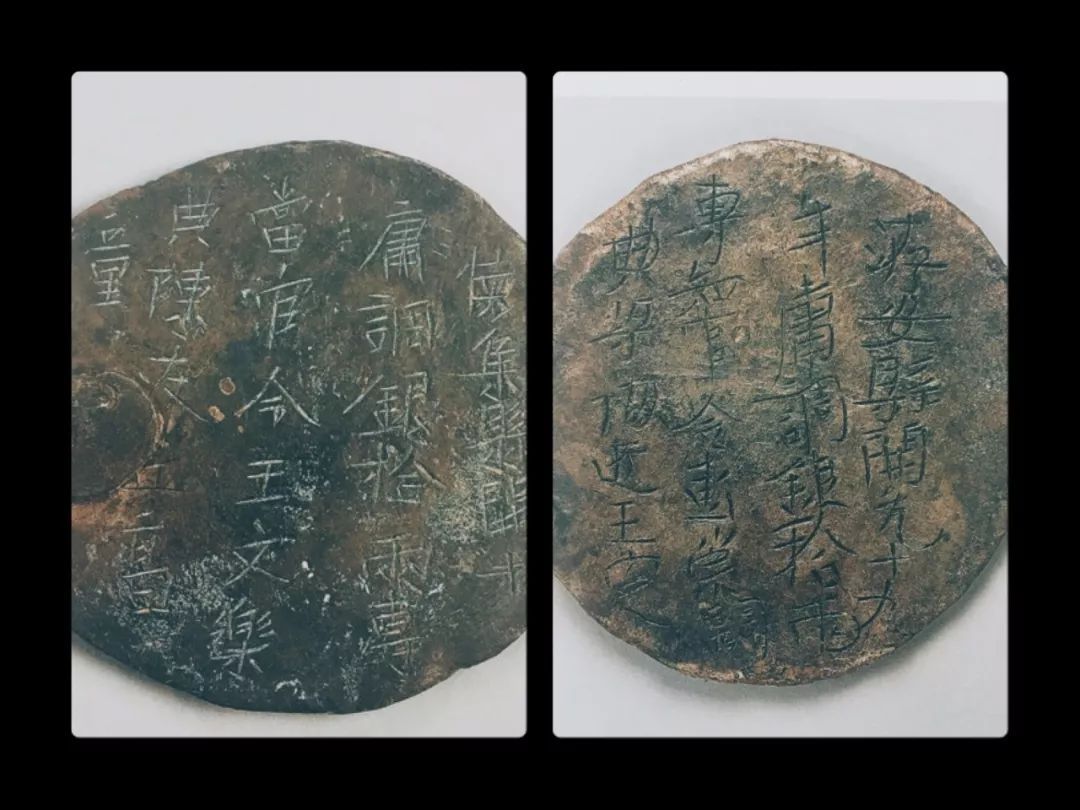 懷集縣開十
庸調銀拾兩專
當官令王文樂
典陳友匠高
童
洊安縣開元十九
年庸調銀拾兩
專知官令彭崇嗣
典梁海匠王定